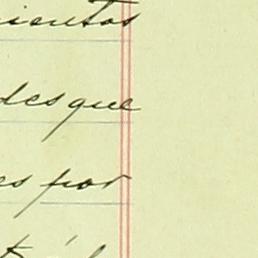 ientos
desque
es por